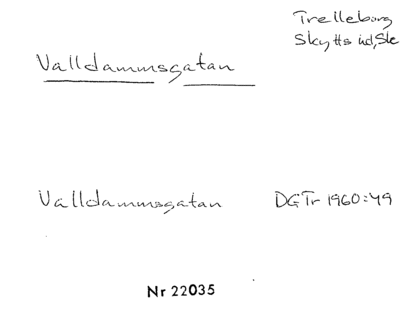 Trelleborg
Skytts hd, Sk
Valldammsgatan
Valldammsgatan DGTr 1960:49
Nr 22035